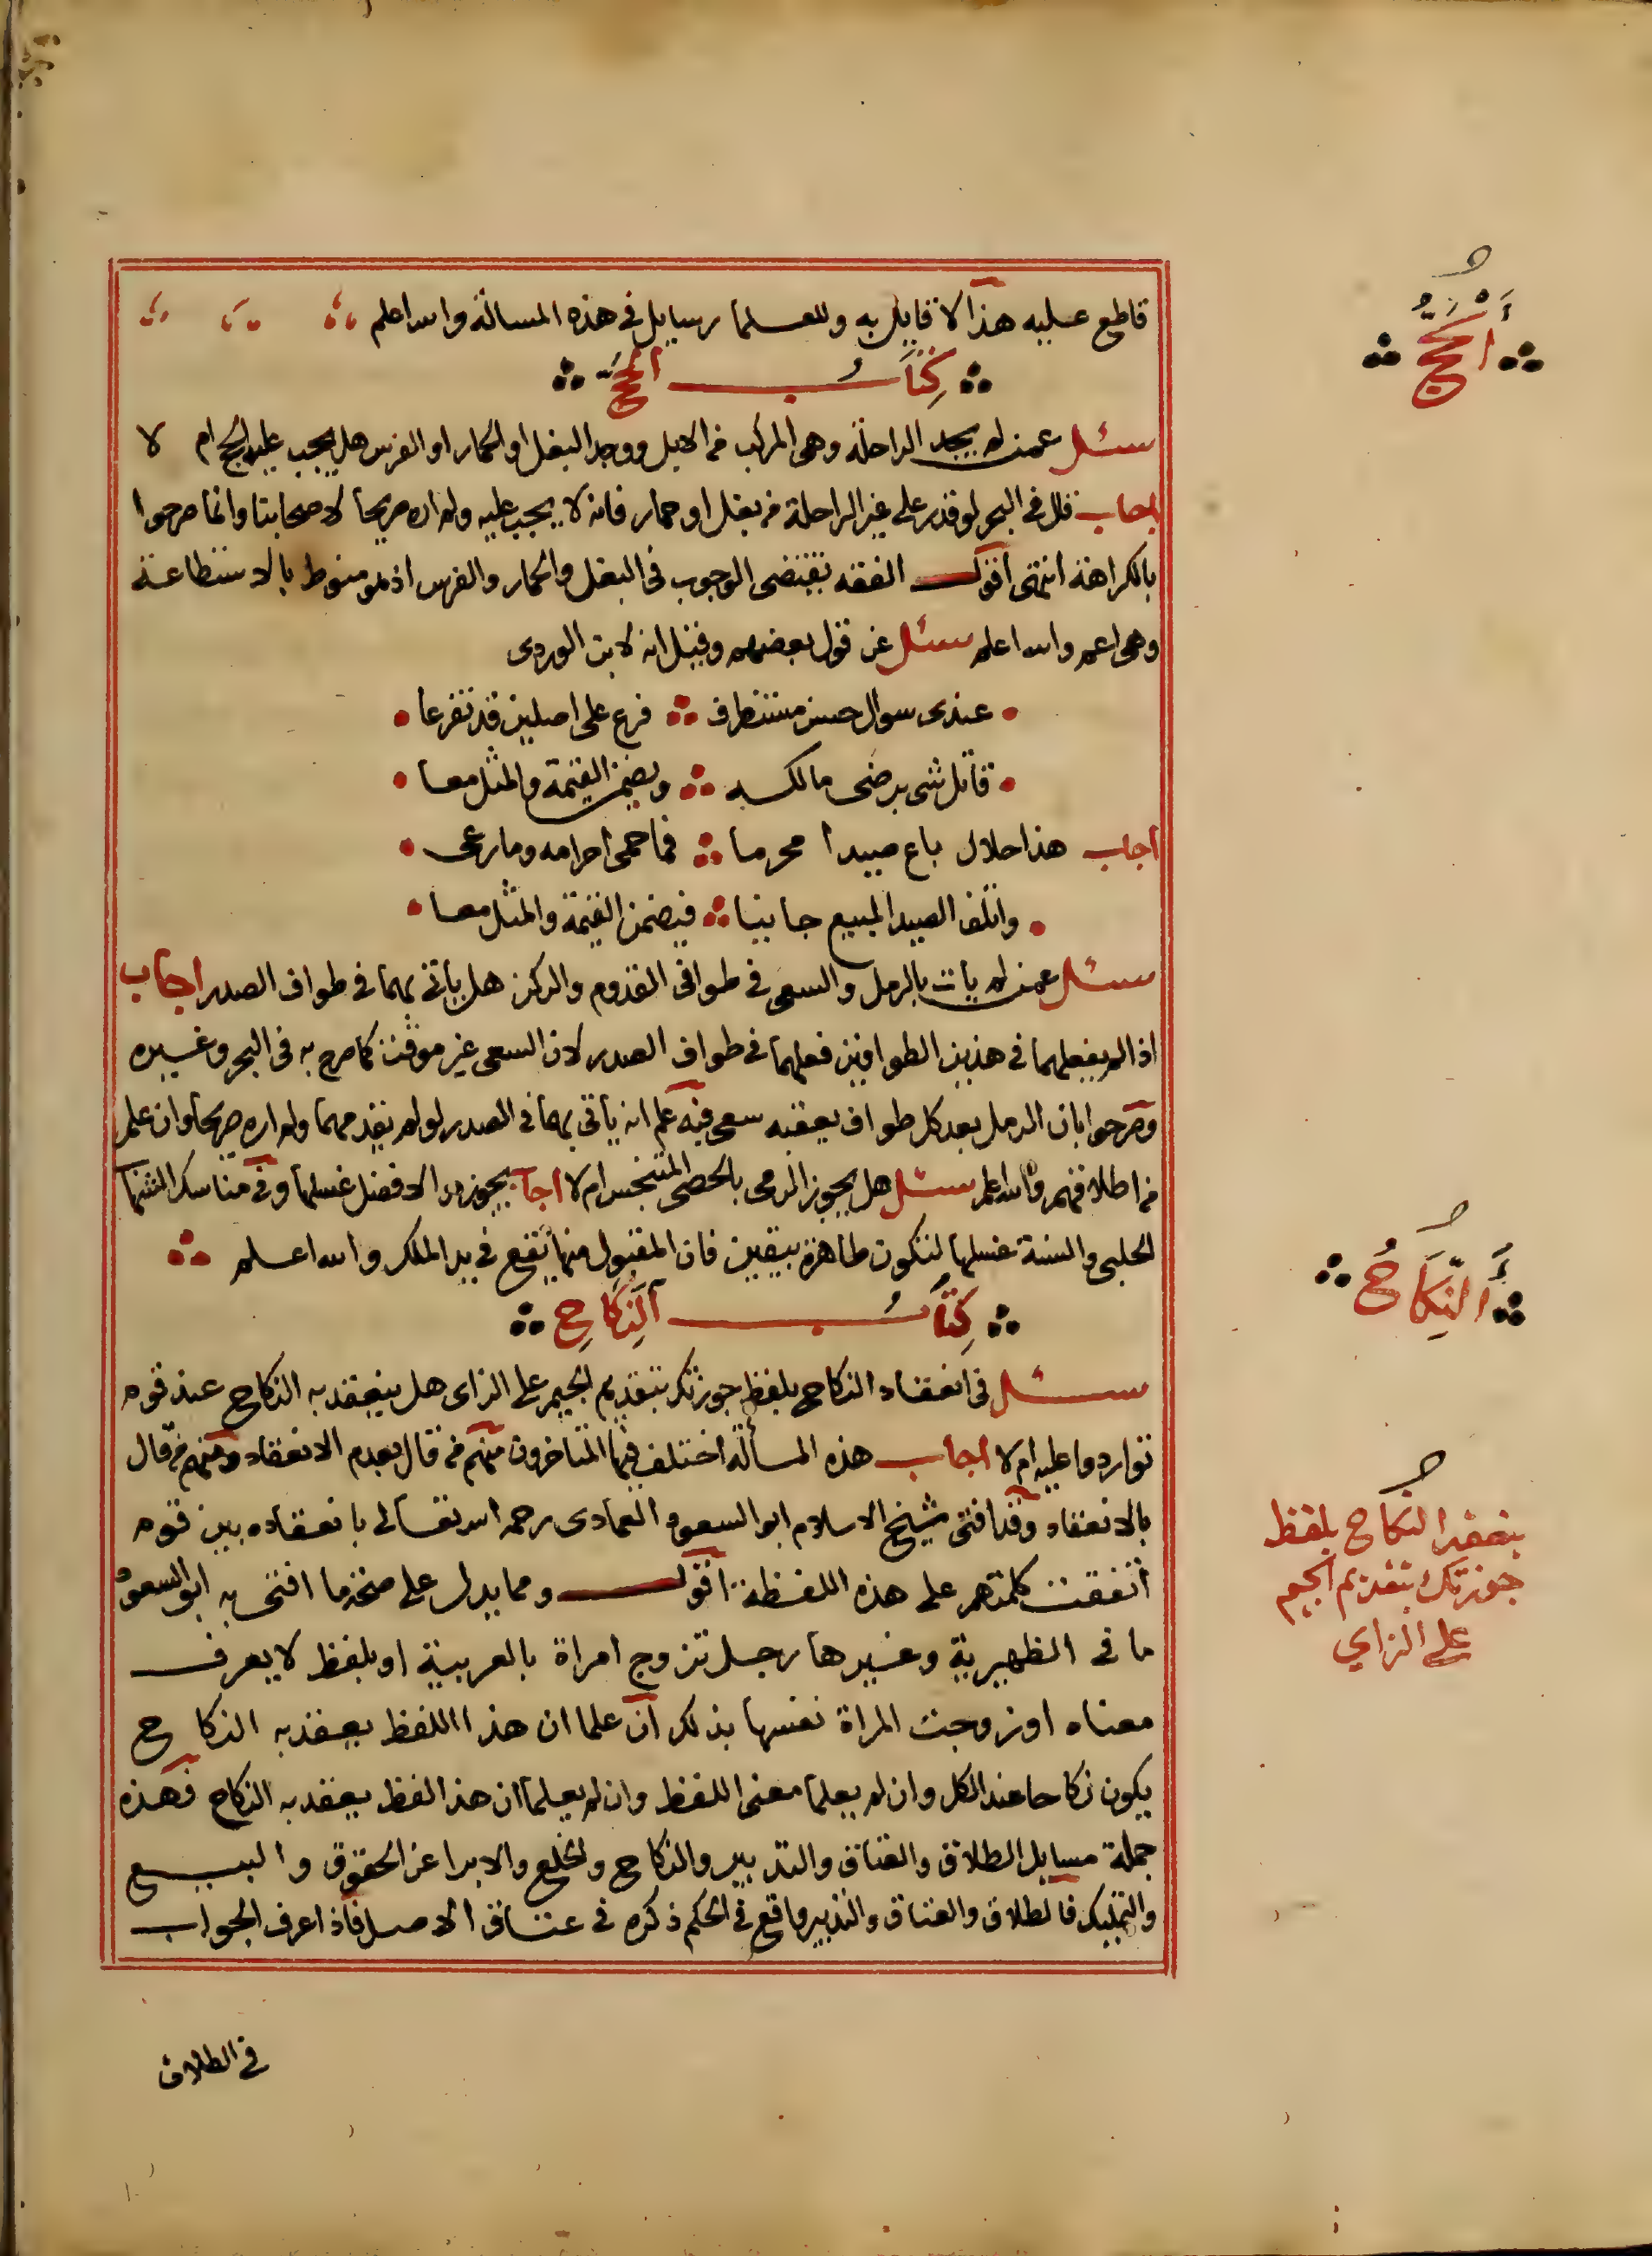 قاطع عليه هذا لا قايل به وللعلما رسايل في هذه المسالة والله اعلم
كِتَابُ الحَجّ
سئل عمن لم يجد الراحلة وهى المركب من الابل ووجد البغل او الحمار او الفرس هل يجب عليه الحج ام لا
اجاب قال في البحر لو قدر على غير الراحلة من بغل او حمار فانه لا يجب عليه ولم اره صريحا لاصحابنا وانما صرحوا
بالكراهة انتهى اقول الفقه يقتضى الوجوب فى البغل والحمار والفرس اذ هو منوط بالاستطاعة
وهى اعم والله اعلم سئل عن قول بعضهم وقيل انه لابن الوردى
عندى سوال حسن مستظرف فرع على اصلين قد تفرعا
قاتل شى برضى مالكه ويضمن القيمة والمثل معا
اجاب هذا حلال باع صيدا محرما فما حمى احرامه وما رعى
واتلف الصيد المبيع جانيا فيضمن القيمة والمثل معا
سئل عمن لم يات بالرمل والسعى فى طوافى القدوم والركن هل ياتى بهما فى طواف الصدر اجاب
اذا لم يفعلهما فى هذين الطوافين فعلهما فى طواف الصدر لان السعى غير موقت كما صرح به فى البحر وغيره
وصرحوا بان الرمل بعد كل طواف يعقبه سعى فيه علم انه ياتى بهما فى الصدر لو لم يقدمهما ولم اره صريحا وان علم
من اطلاقهم والله اعلم سئل هل يجوز الرمى بالحصى المتنجس ام لا اجاب يجوز والافضل غسلها وفى مناسك
الحلبى والسنة غسلها لتكون طاهرة بيقين فان المقبول منها يقع فى يد الملك والله اعلم
كِتَابُ النِّكَاحِ
سئل فى انعقاد النكاح بلفظ جوزتك بتقديم الجيم على الزاى هل ينعقد به النكاح عند قوم
تواردوا عليه ام لا اجاب هذه المسألة اختلف فيها المتاخرون منهم من قال بعدم الانعقاد ومنهم من قال
بالانعقاد وقد افتى شيخ الاسلام ابو السعود العمادى رحمه الله تعالى بانعقاده بين قوم
اتفقت كلمتهم على هذه اللفظة اقول ومما يدل على صحة ما افتى به ابو السعود
ما فى الظهيرية وغيرها رجل تزوج امراة بالعربية او بلفظ لا يعرف
معناه او زوجت المراة نفسها بذلك ان علما ان هذا اللفظ يعقد به النكاح
يكون نكاحا عند الكل وان لم يعلما معنى اللفظ وان لم يعلما ان هذا لفظ يعقد به النكاح فهذه
جملة مسايل الطلاق والعتاق والتدبير والنكاح والخلع والابرا عن الحقوق والبيع
والتمليك فالطلاق والعتاق والتدبير واقع فى الحكم ذكره فى عتاق الاصل فاذا عرف الجواب
فى الطلاق
اَلْحَجُّ
اَلنِّكَاحُ
ينعقد النكاح بلفظ
جوزتك بتقديم الجيم
على الزاي